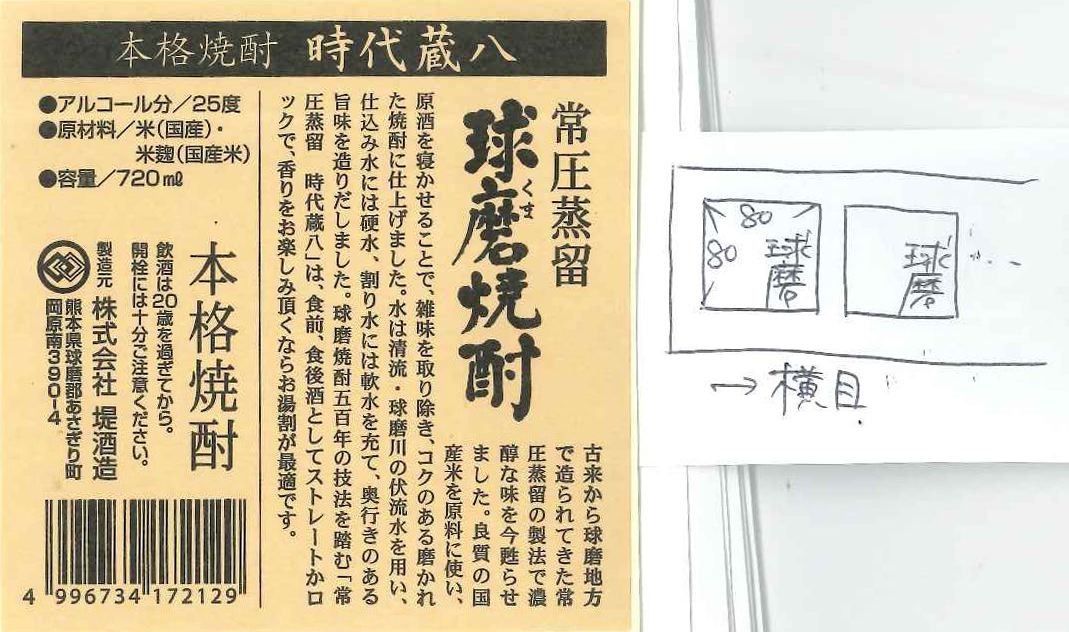 本格焼酎 時代蔵八
常圧蒸留
球磨焼酎
くま
古来から球磨地方
で造られてきた常
圧蒸留の製法で濃
醇な味を今甦らせ
ました。良質の国
産米を原料に使い、
原酒を寝かせることで、雑味を取り除き、コクのある磨かれ
た焼酎に仕上げました。水は清流・球磨川の伏流水を用い、
仕込み水には硬水、割り水には軟水を充て、奥行きのある
旨味を造りだしました。球磨焼酎五百年の技法を踏む「常
圧蒸留　時代蔵八」は、食前、食後酒としてストレートかロ
ックで、香りをお楽しみ頂くならお湯割が最適です。
●アルコール分／25度
●原材料／米(国産)・
米麹(国産米)
●容量／720㎖
本格焼酎
飲酒は20歳を過ぎてから。
開栓には十分ご注意ください。
製造元 株式会社 堤酒造
熊本県球磨郡あさぎり町
岡原南390-4
4 996734 172129
80
80
球磨
球磨
...
→ 横目